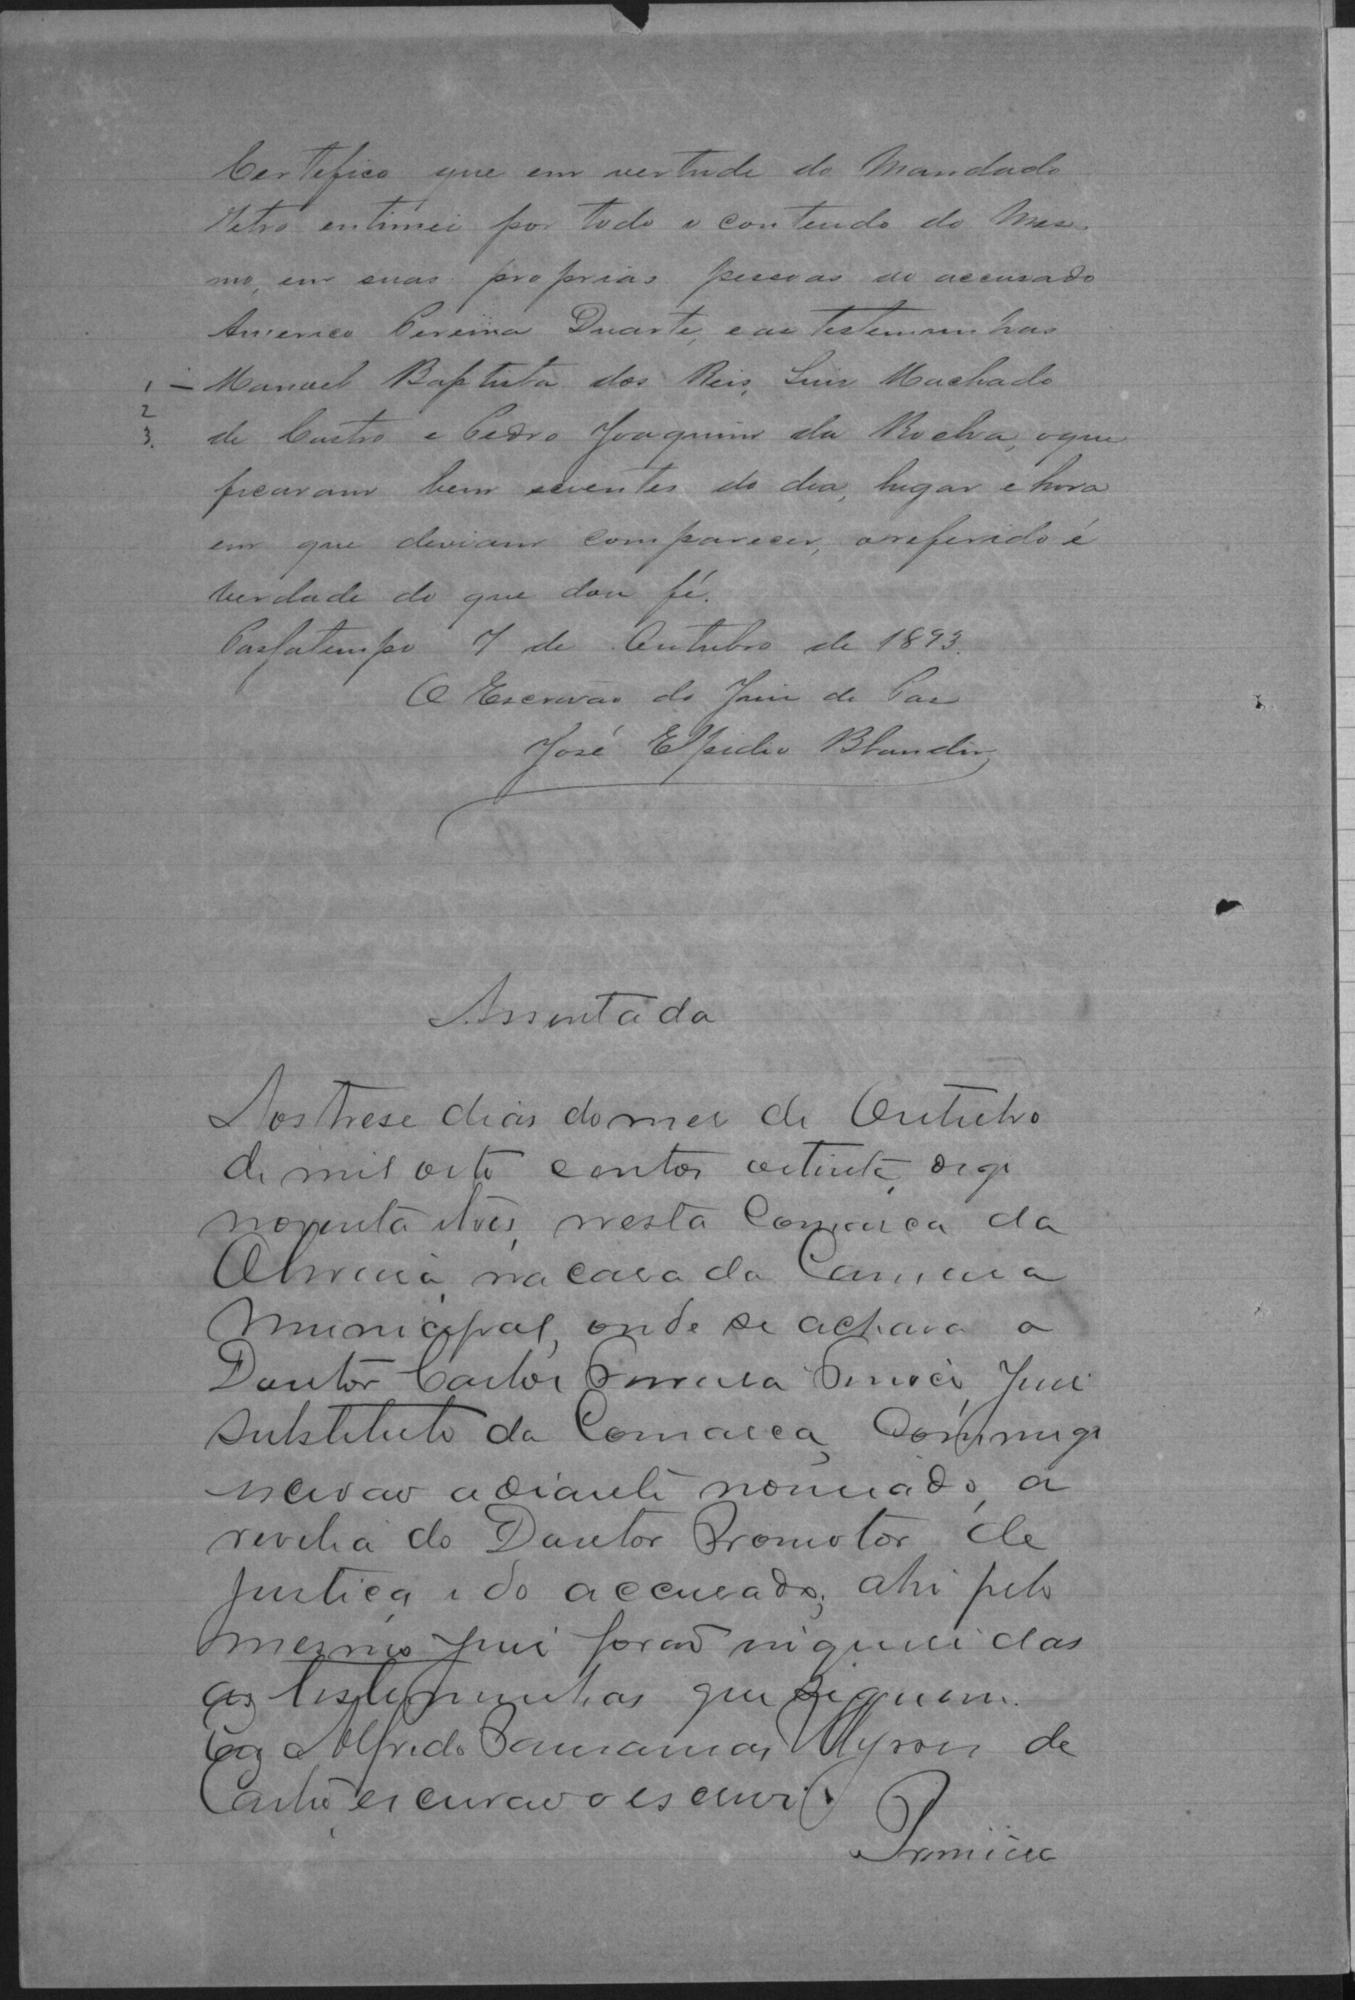 Certifico que em vertude do Mandado
Retro entimei por todo o contendo do Mes-
mo, em suas proprias pessoas ao accusado
Americo Pereira Duarte, e as testemunhas
1 - Manoel Baptista dos Reis, Luis Machado
2
3. de Castro e Pedro Joaquim da Rocha, o que
ficaram bem scientes do dia, lugar e hora
em que deviam comparecer, o referido é
verdade do que dou fé.
Passatempo 7 de Outubro de 1893.
O Escrivão do Juiz de Paz
José Elpidio Blandin
Assentada
Aos trese dias do mes de Outubro
de mil oito centos oitenta, digo
noventa e tres, nesta Comarca da
Oliveira, na casa da Camara
Municipal, onde se achava o
Doutor Carlos Ferreira Juiz
substituto da Comarca, Commigo
escrivão adiante nomeado, a
revelia do Doutor Promotor de
Justiça e do accusado; ahi pelo
mesmo Juiz forão inqueridas
as testemunhas que seguem.
Eu Alfredo de
Castro escrivão o escrevi.
Primeira